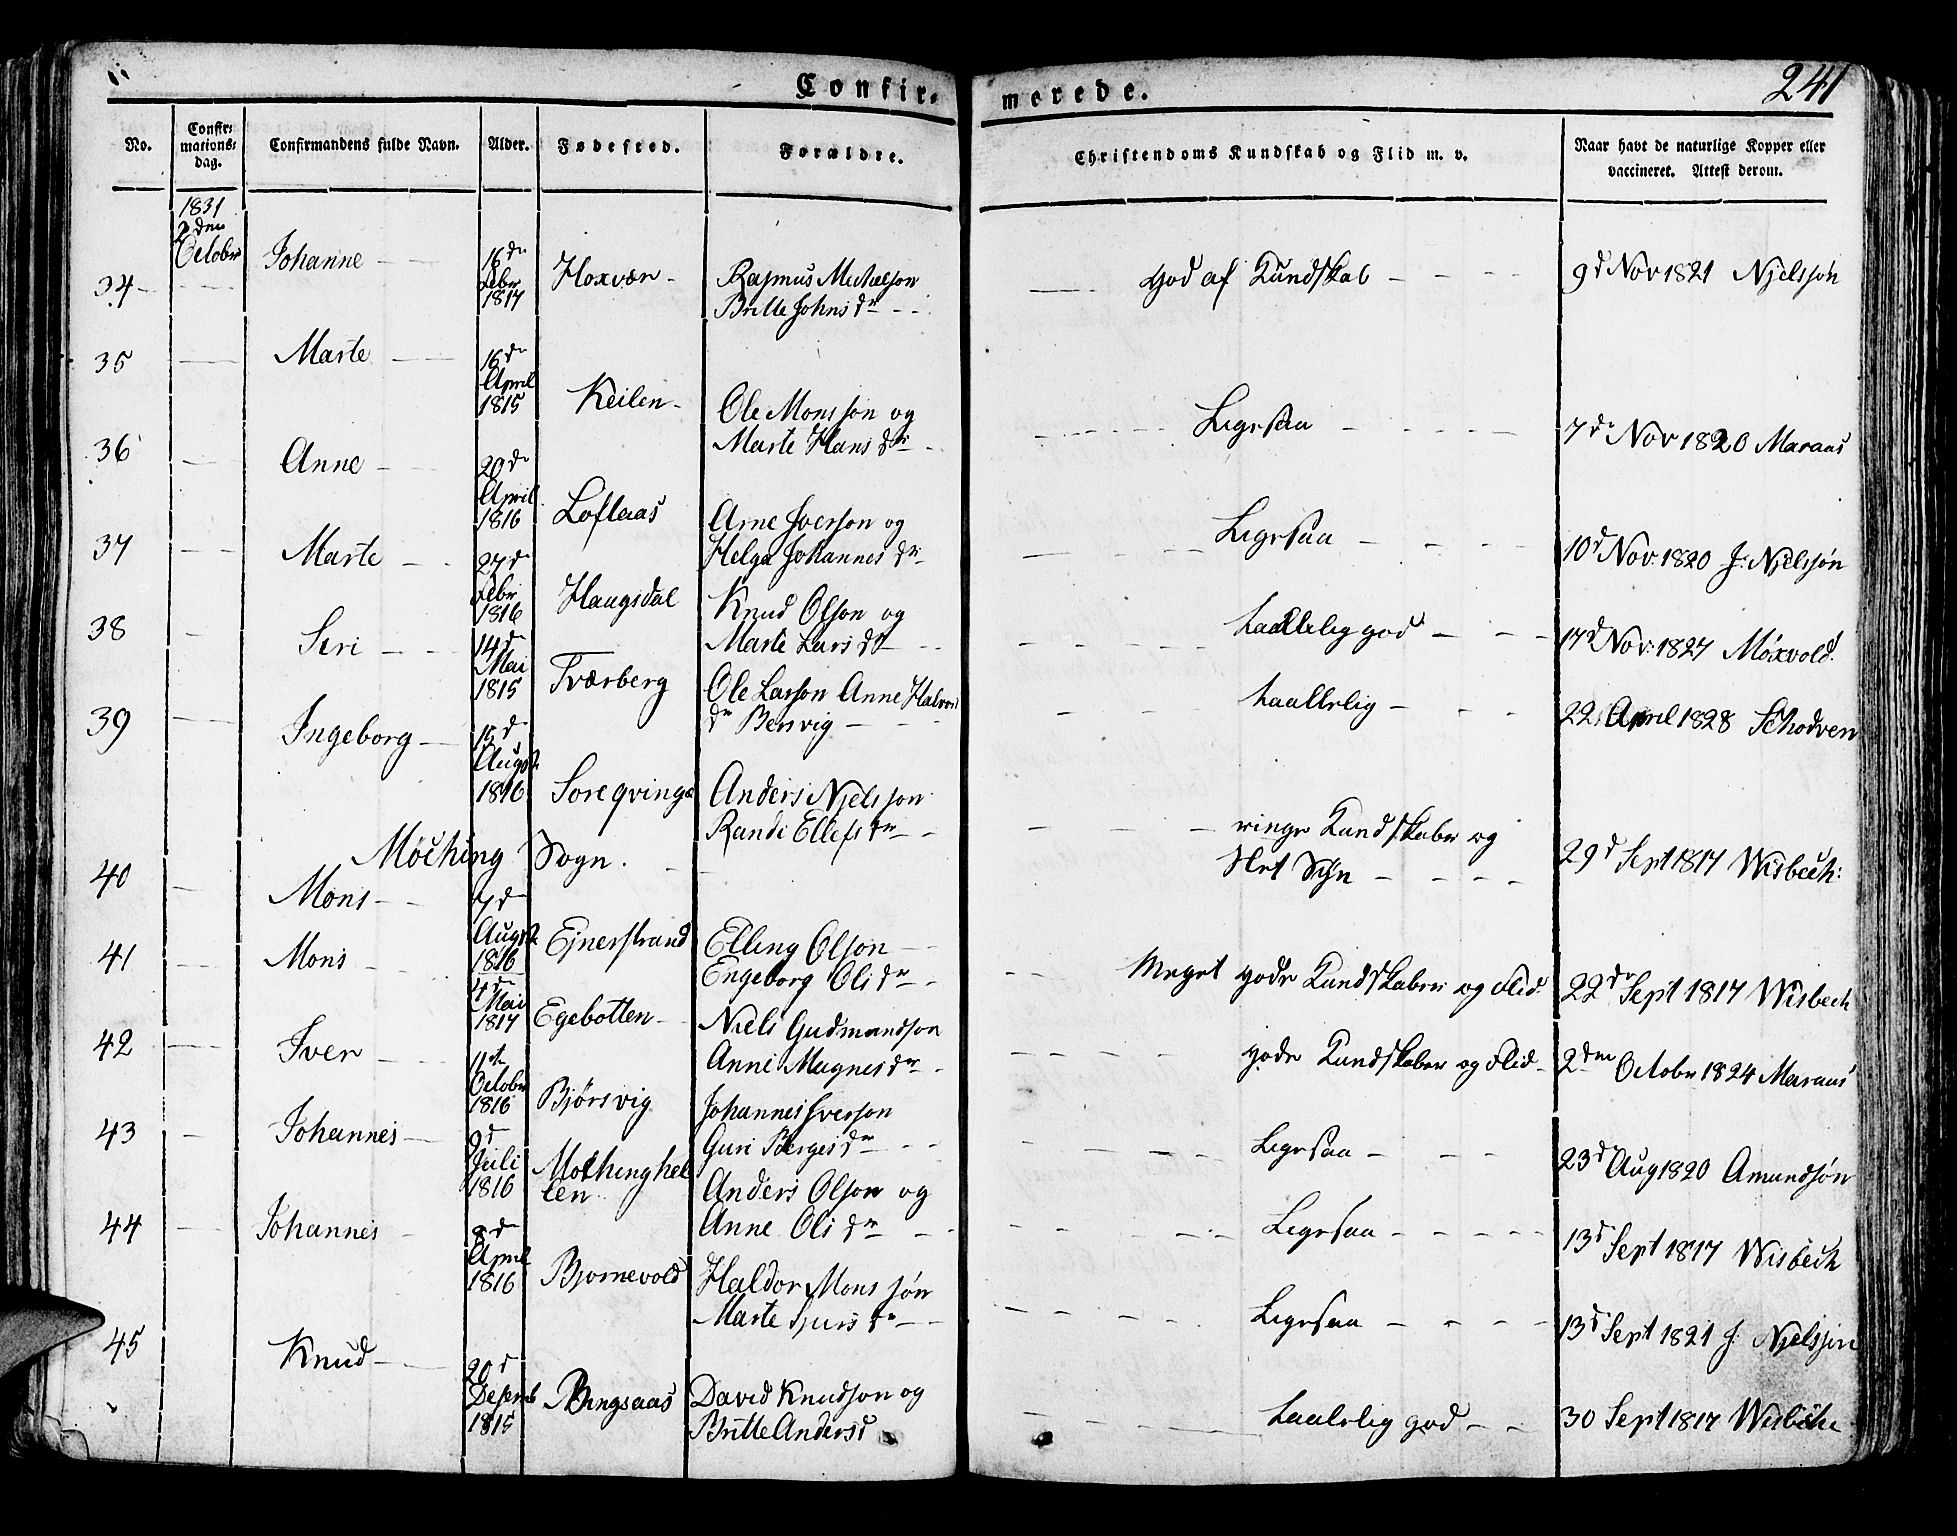 Confir-
merede.
241
No.
Confir-
mations-
dag.
Confirmandens fulde Navn.
Alder.
Fødested.
Forældre.
Christendoms Kundskab og Flid m. v.
Naar havt de naturlige Kopper eller
vaccineret. Attest derom.
1831
2den
Octobr
34 Johanne 16de Febr 1817 Hoxvær Rasmus Michelson
Britte Johnsdr God af Kundskab 9d Nov 1821 Njelssøn
35 Marte 16de April 1815 Keilen Ole Monsson og
Marte Hansdr Ligesaa 7de Nov 1820 Maraas
36 Anne 20de April 1816 Loflaas Arne Iverson og
Helga Johannesdr Ligesaa 10d Nov. 1820 J: Njelssøn
37 Marte 27de Febr 1816 Haugsdal Knud Olson og
Marte Larsdr taalelig god 17d Nov: 1827 Møxvold.
38 Siri 14de Mai 1815 Tværberg Ole Larsson Anne Halvors
dr Bersvig taallelig 22 April 1828 Schodven
39 Ingeborg d Augst 1816 Soreqvinge Anders Njelsson
Randi Ellefsdr ringe Kundskaber og
slet Syn 29d Sept 1817 Wisbech:
Møcking Sogn.
40 Mons 7d Augst 1816 Ejnerstrand Elling Olson
Engeborg Olsdr Meget gode Kundskaber og Flid. 22de Sept 1817 Wisbech
41 Mons 4de Mai 1817 Egebotten Niels Gudmundson
Anne Magnesdr gode Kundskaber og Flid 2den Octobr 1824 Maraas
42 Iver 11te Octobr 1816 Bjørsvig Johannes Iverson
Guri Bergesdr Ligesaa 23d Aug 1820 Amundsøn
43 Johannes 9d Juli 1816 Mockinghel
len Anders Olson og
Anne Olsdr Ligesaa 13d Sept 1817 Wisbech
44 Johannes 8d April 1816 Bjornevold Haldor Monssøn
Marte Sjursdr Ligesaa 13d Sept 1821 J. Njelsjøn
45 Knud 20d Desemb 1815 David Knudson og
Britte Andersd taalelig god 30 Sept 1817 Wisbeche